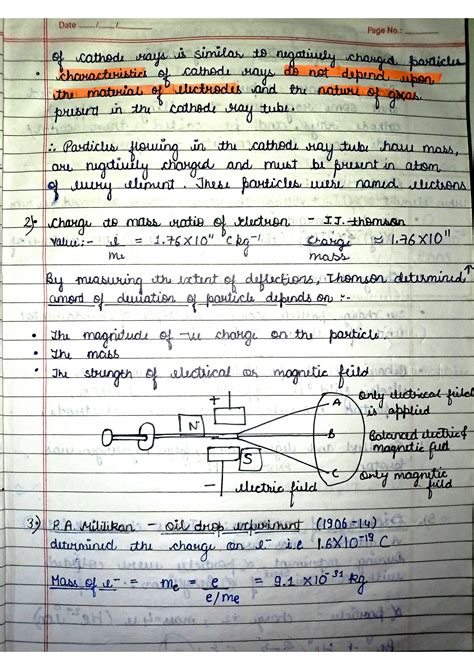 Date ___/___/___
Page No.:
of cathode rays is similar to negatively charged particles
• characteristics of cathode rays do not depend upon
the material of electrodes and the nature of gas
present in the cathode ray tube.
∴ Particles flowing in the cathode ray tube have mass,
are negatively charged and must be present in atom
of every element. These particles were named electrons
2) Charge to mass ratio of electron - J.J. Thomson
Value:- e/me = 1.76×10¹¹ C kg⁻¹ charge/mass ≈ 1.76×10¹¹
By measuring the extent of deflections, Thomson determined ↑
amont of deviation of particle depends on :-
• The magnitude of -ve charge on the particle
• The mass
• The strength of electrical or magnetic field
+
N
S
-
electric field
A
B
C
Only electrical field
is applied
Balanced electric &
magnetic field
Only magnetic
field
3) R.A. Millikan - oil drop experiment (1906-14)
determined the charge on e⁻ i.e 1.6×10⁻¹⁹ C
Mass of e⁻ = me = e / e/me = 9.1 ×10⁻³¹ kg